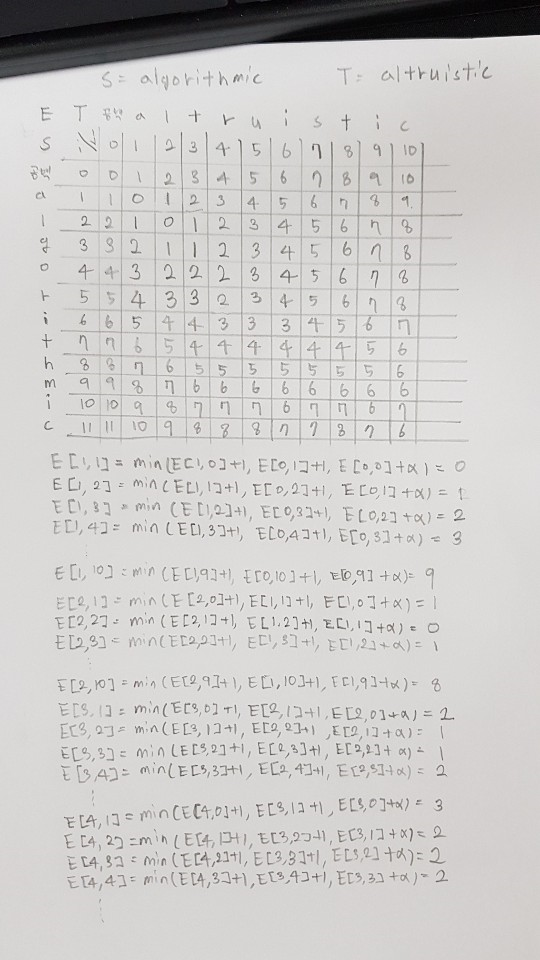 S = algorithmic T = altruistic
E T 공백 a l t r u i s t i c
S i\j 0 1 2 3 4 5 6 7 8 9 10
공백 0 0 1 2 3 4 5 6 7 8 9 10
a 1 1 0 1 2 3 4 5 6 7 8 9
l 2 2 1 0 1 2 3 4 5 6 7 8
g 3 3 2 1 1 2 3 4 5 6 7 8
o 4 4 3 2 2 2 3 4 5 6 7 8
r 5 5 4 3 3 2 3 4 5 6 7 8
i 6 6 5 4 4 3 3 3 4 5 6 7
t 7 7 6 5 4 4 4 4 4 4 5 6
h 8 8 7 6 5 5 5 5 5 5 5 6
m 9 9 8 7 6 6 6 6 6 6 6 6
i 10 10 9 8 7 7 7 6 7 7 6 7
c 11 11 10 9 8 8 8 7 7 8 7 6
E[1,1] = min(E[1,0]+1, E[0,1]+1, E[0,0]+α) = 0
E[1,2] = min(E[1,1]+1, E[0,2]+1, E[0,1]+α) = 1
E[1,3] = min(E[1,2]+1, E[0,3]+1, E[0,2]+α) = 2
E[1,4] = min(E[1,3]+1, E[0,4]+1, E[0,3]+α) = 3
⋮
E[1,10] = min(E[1,9]+1, E[0,10]+1, E[0,9]+α) = 9
E[2,1] = min(E[2,0]+1, E[1,1]+1, E[1,0]+α) = 1
E[2,2] = min(E[2,1]+1, E[1,2]+1, E[1,1]+α) = 0
E[2,3] = min(E[2,2]+1, E[1,3]+1, E[1,2]+α) = 1
⋮
E[2,10] = min(E[2,9]+1, E[1,10]+1, E[1,9]+α) = 8
E[3,1] = min(E[3,0]+1, E[2,1]+1, E[2,0]+α) = 2
E[3,2] = min(E[3,1]+1, E[2,2]+1, E[2,1]+α) = 1
E[3,3] = min(E[3,2]+1, E[2,3]+1, E[2,2]+α) = 1
E[3,4] = min(E[3,3]+1, E[2,4]+1, E[2,3]+α) = 2
⋮
E[4,1] = min(E[4,0]+1, E[3,1]+1, E[3,0]+α) = 3
E[4,2] = min(E[4,1]+1, E[3,2]+1, E[3,1]+α) = 2
E[4,3] = min(E[4,2]+1, E[3,3]+1, E[3,2]+α) = 2
E[4,4] = min(E[4,3]+1, E[3,4]+1, E[3,3]+α) = 2
⋮